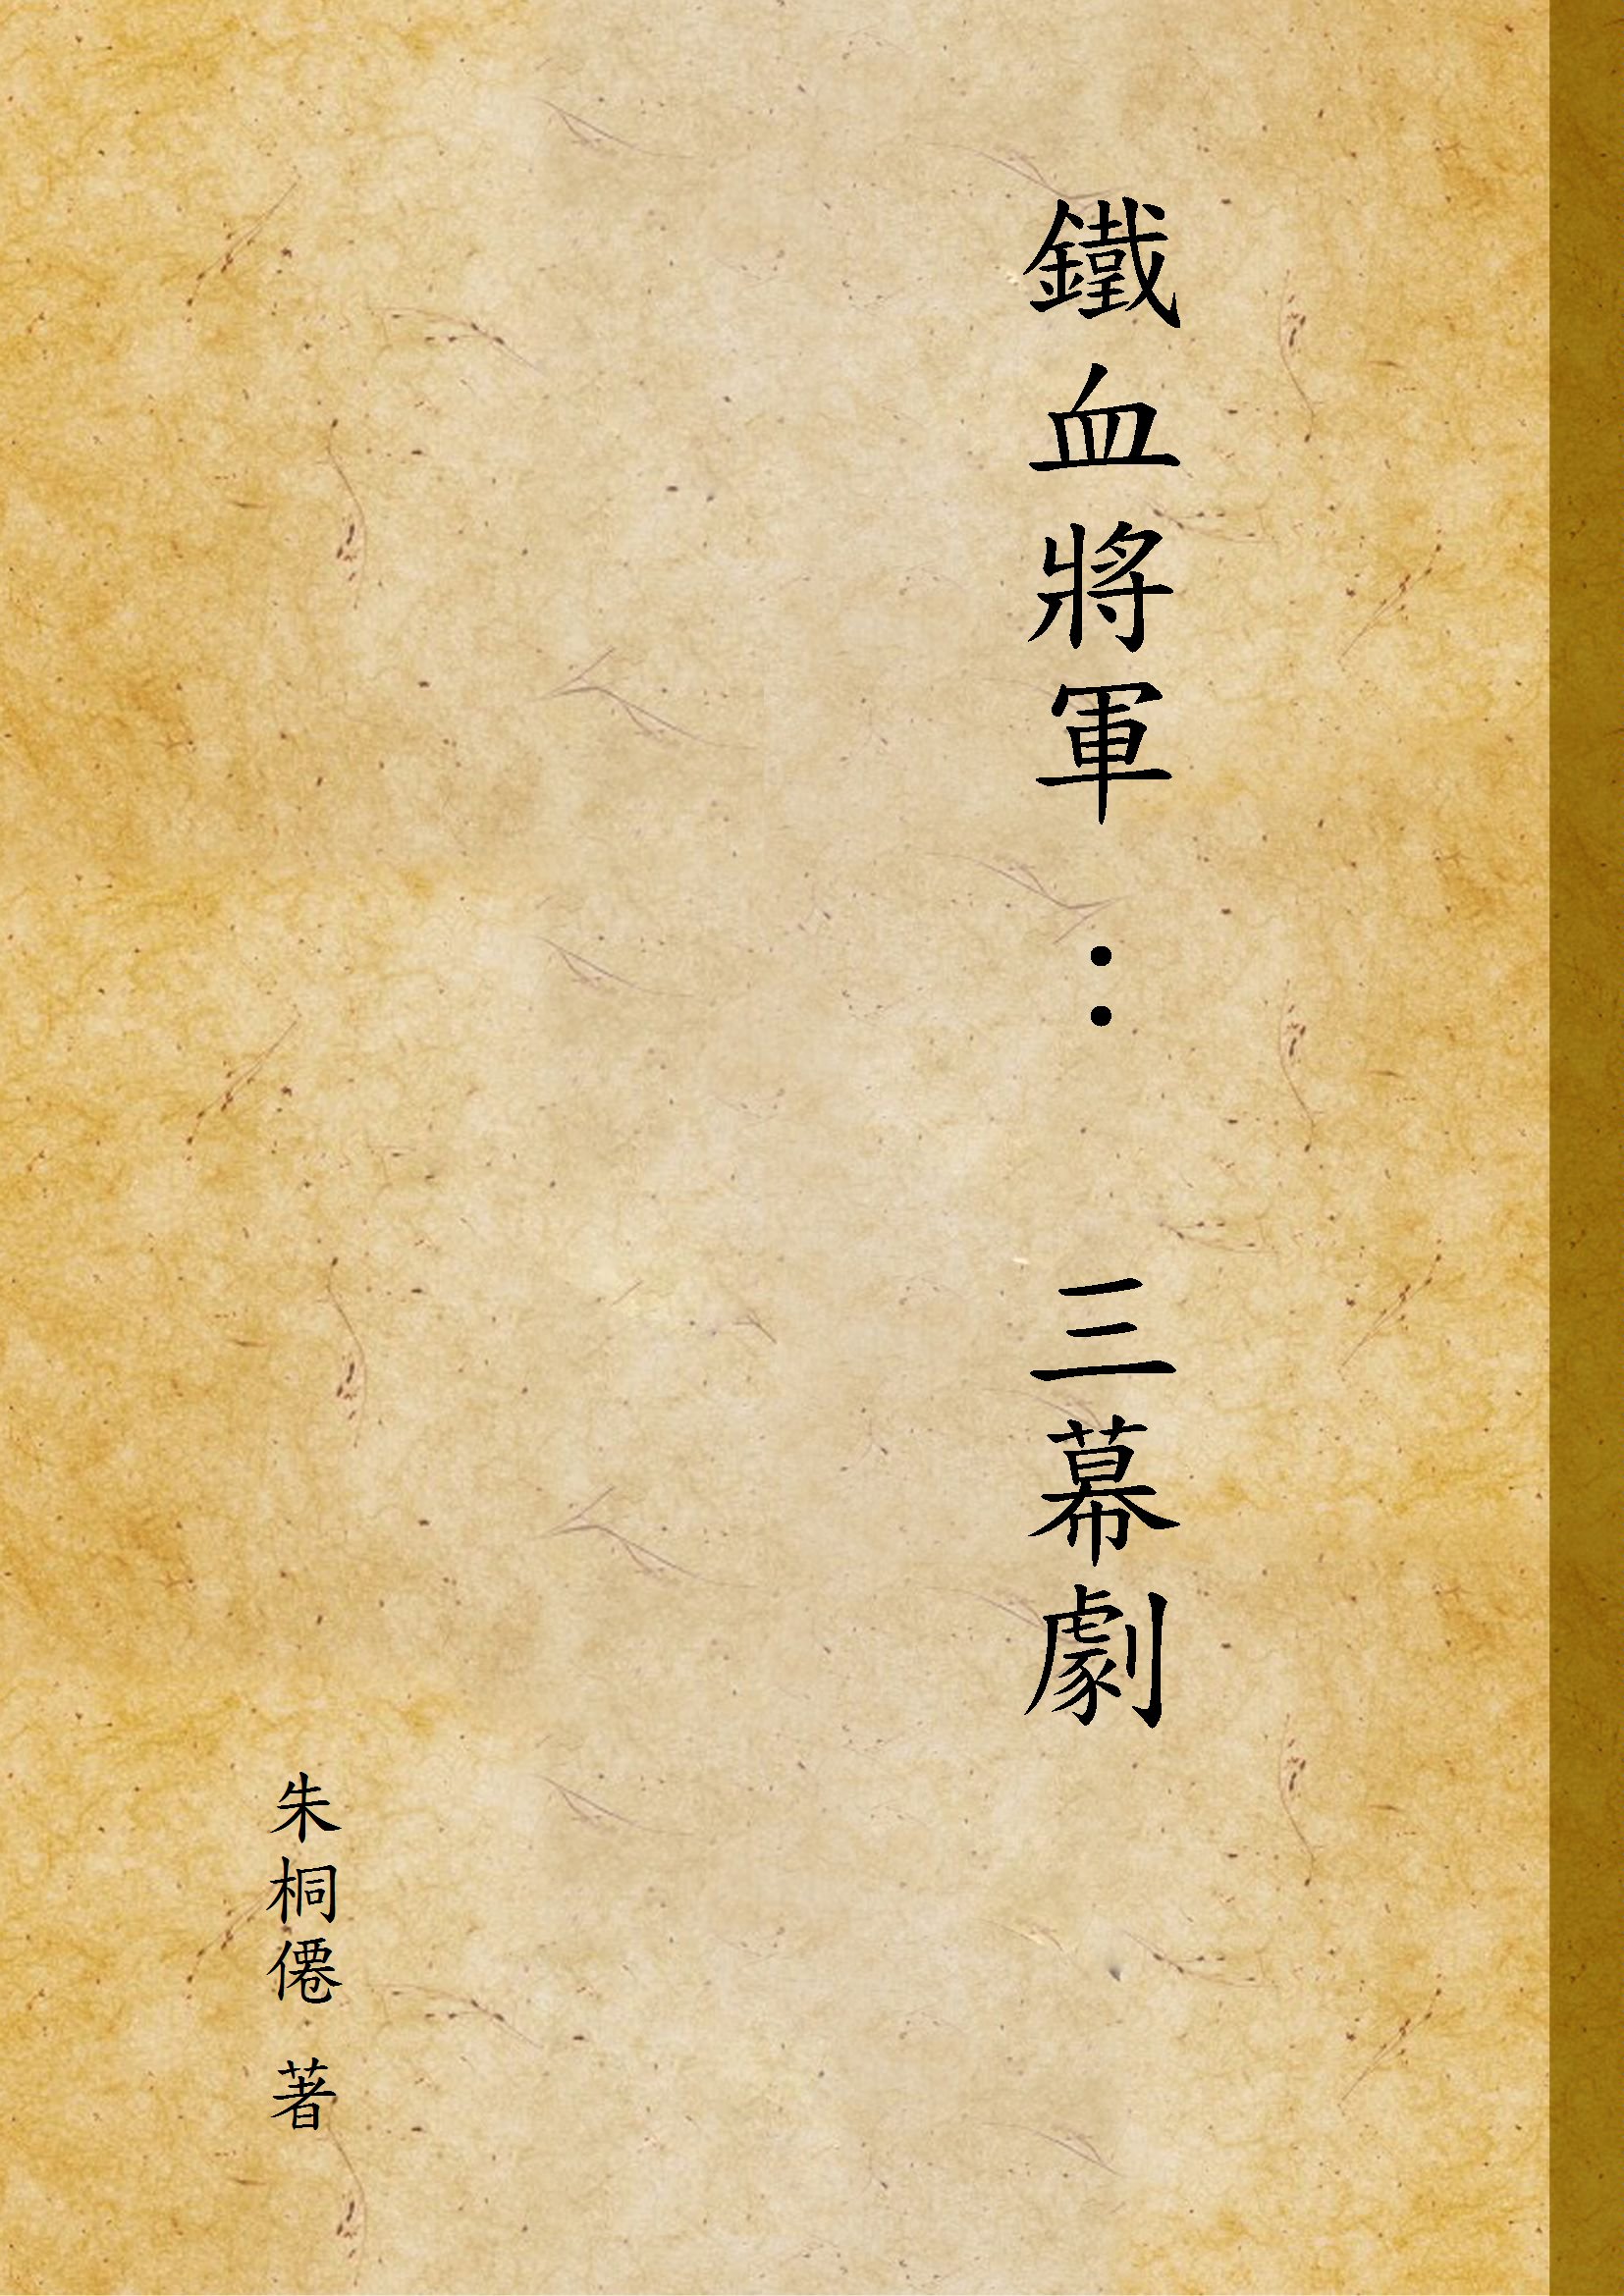 鐵血將軍： 三幕劇
朱桐僊 著